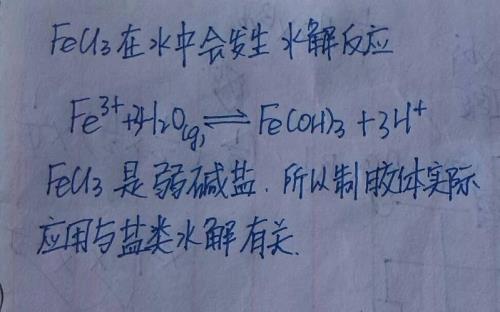 FeCl3在水中会发生水解反应
Fe³⁺+3H2O(g)⇌Fe(OH)3+3H⁺
FeCl3是弱碱盐.所以制胶体实际
应用与盐类水解有关.